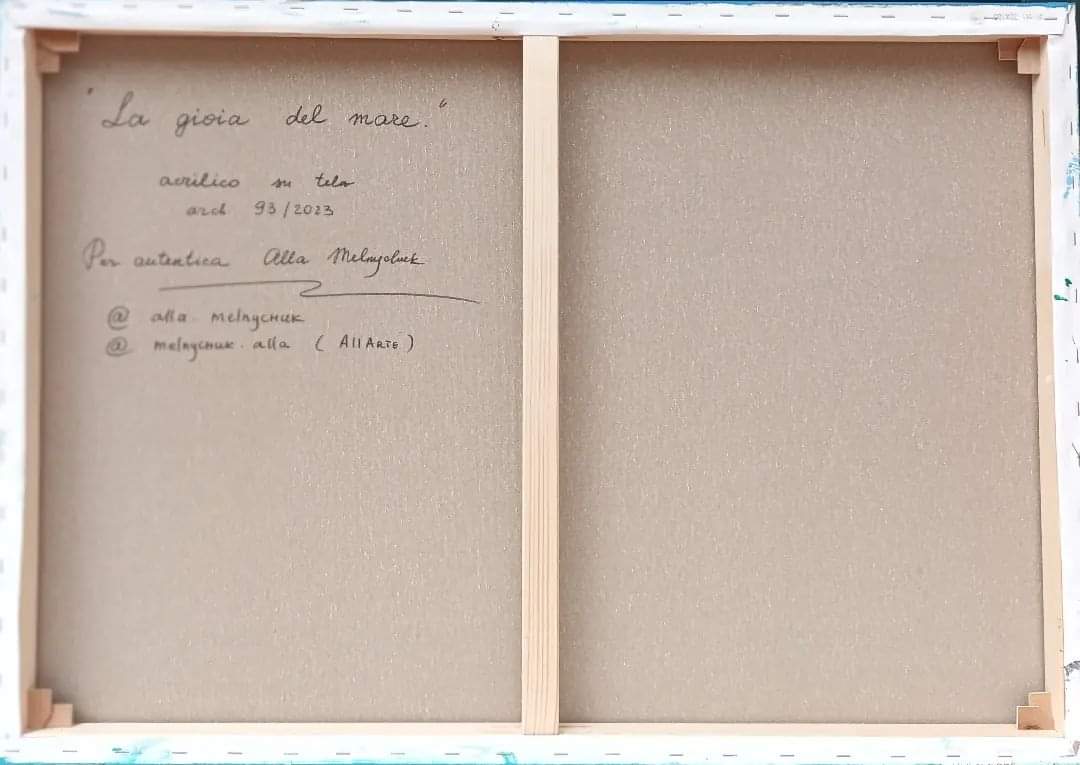 "La gioia del mare."
acrilico su tela
arch 93/2023
Per autentica Alla Melnychuk
@ alla melnyснuк
@ melnyснuк.alla (AllARTE)